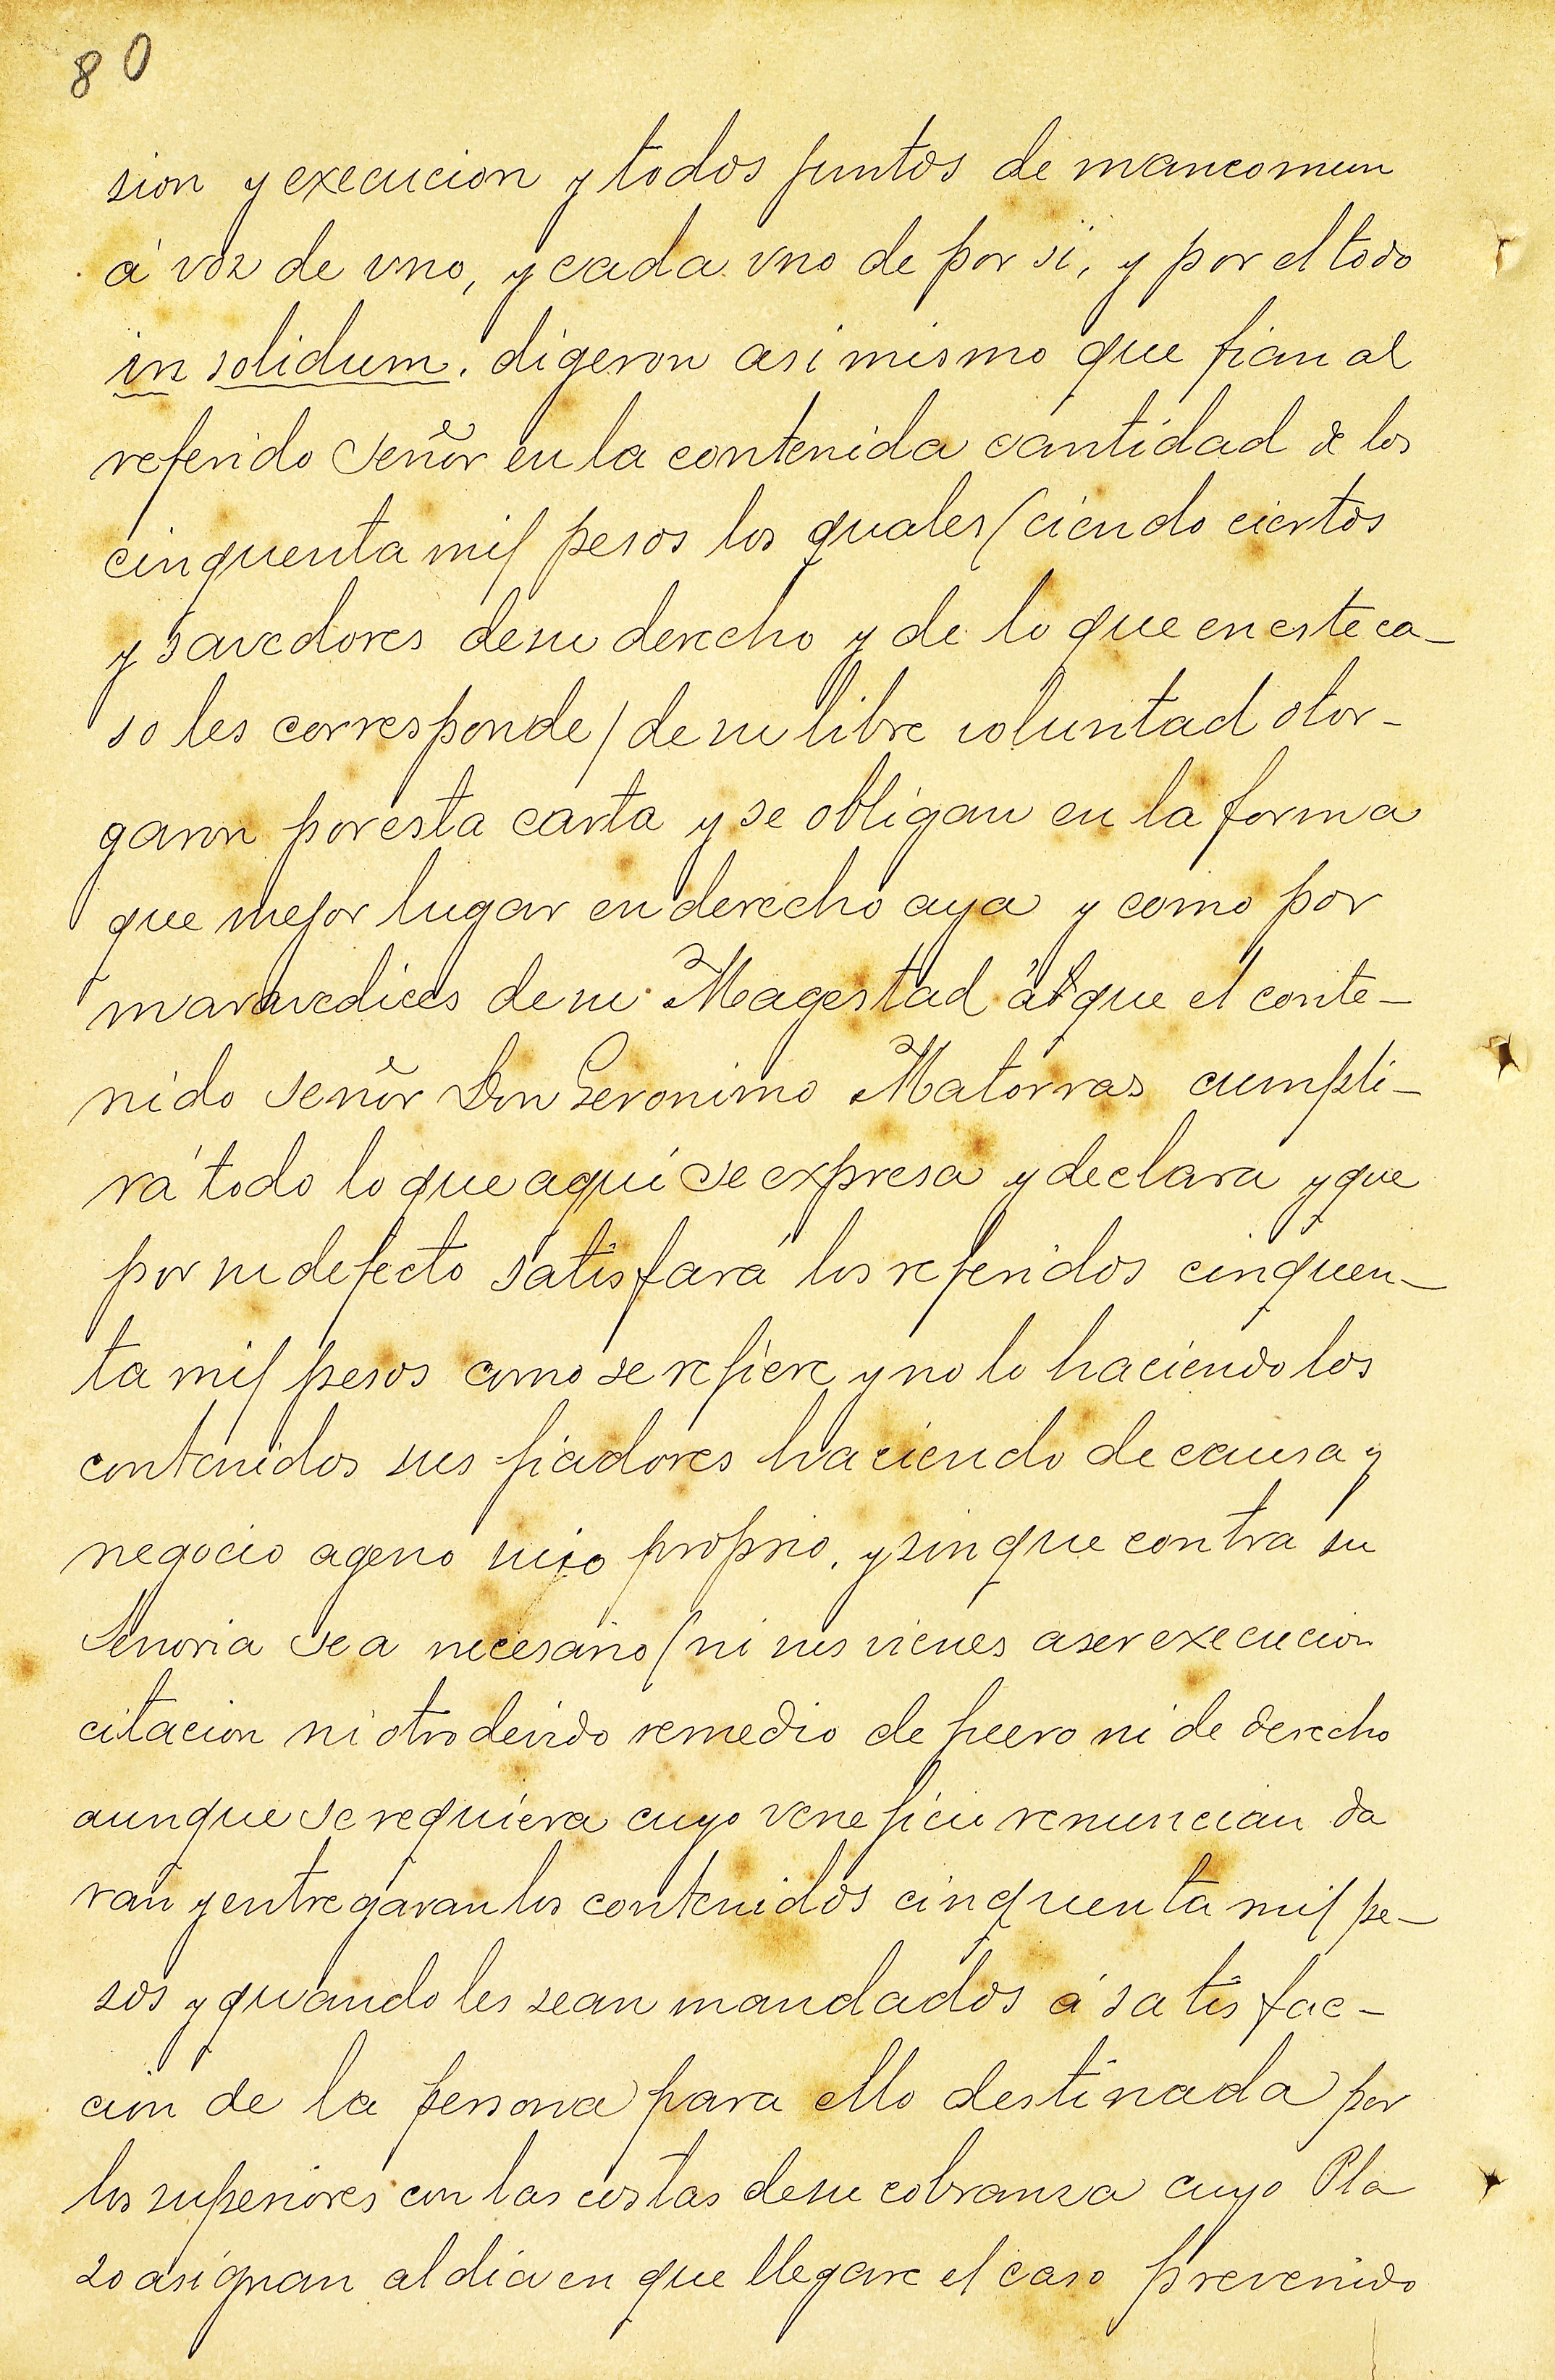 80
sion y execucion y todos juntos de mancomun
á voz de vno, y cada vno de por si, y por el todo
in solidum. digeron asi mismo que fian al
referido Señor en la contenida cantidad de los
cinquenta mil pesos los quales (ciendo ciertos
y savedores de su derecho y de lo que en este ca-
so les corresponde) de su libre voluntad otor-
garon por esta carta y se obligan en la forma
que mejor lugar en derecho aya y como por
maravedices de su Magestad á que el conte-
nido Señor Don Geronimo Matorras cumpli-
rá todo lo que aqui se expresa y declara y que
por su defecto satisfará los referidos cinquen-
ta mil pesos como se refiere y no lo haciendo los
contenidos sus fiadores haciendo de causa y
negocio ageno suio proprio, y sin que contra su
Señoria sea necesario (ni sus vienes aser execucion
citacion ni otro devido remedio de fuero ni de derecho
aunque se requiera cuyo veneficio renuncian da
ran y entregaran los contenidos cinquenta mil pe-
sos y quando les sean mandados á satisfac-
cion de la persona para ello destinada por
los superiores con las costas de su cobranza cuyo Pla
zo asignan al dia en que llegare el caso prevenido